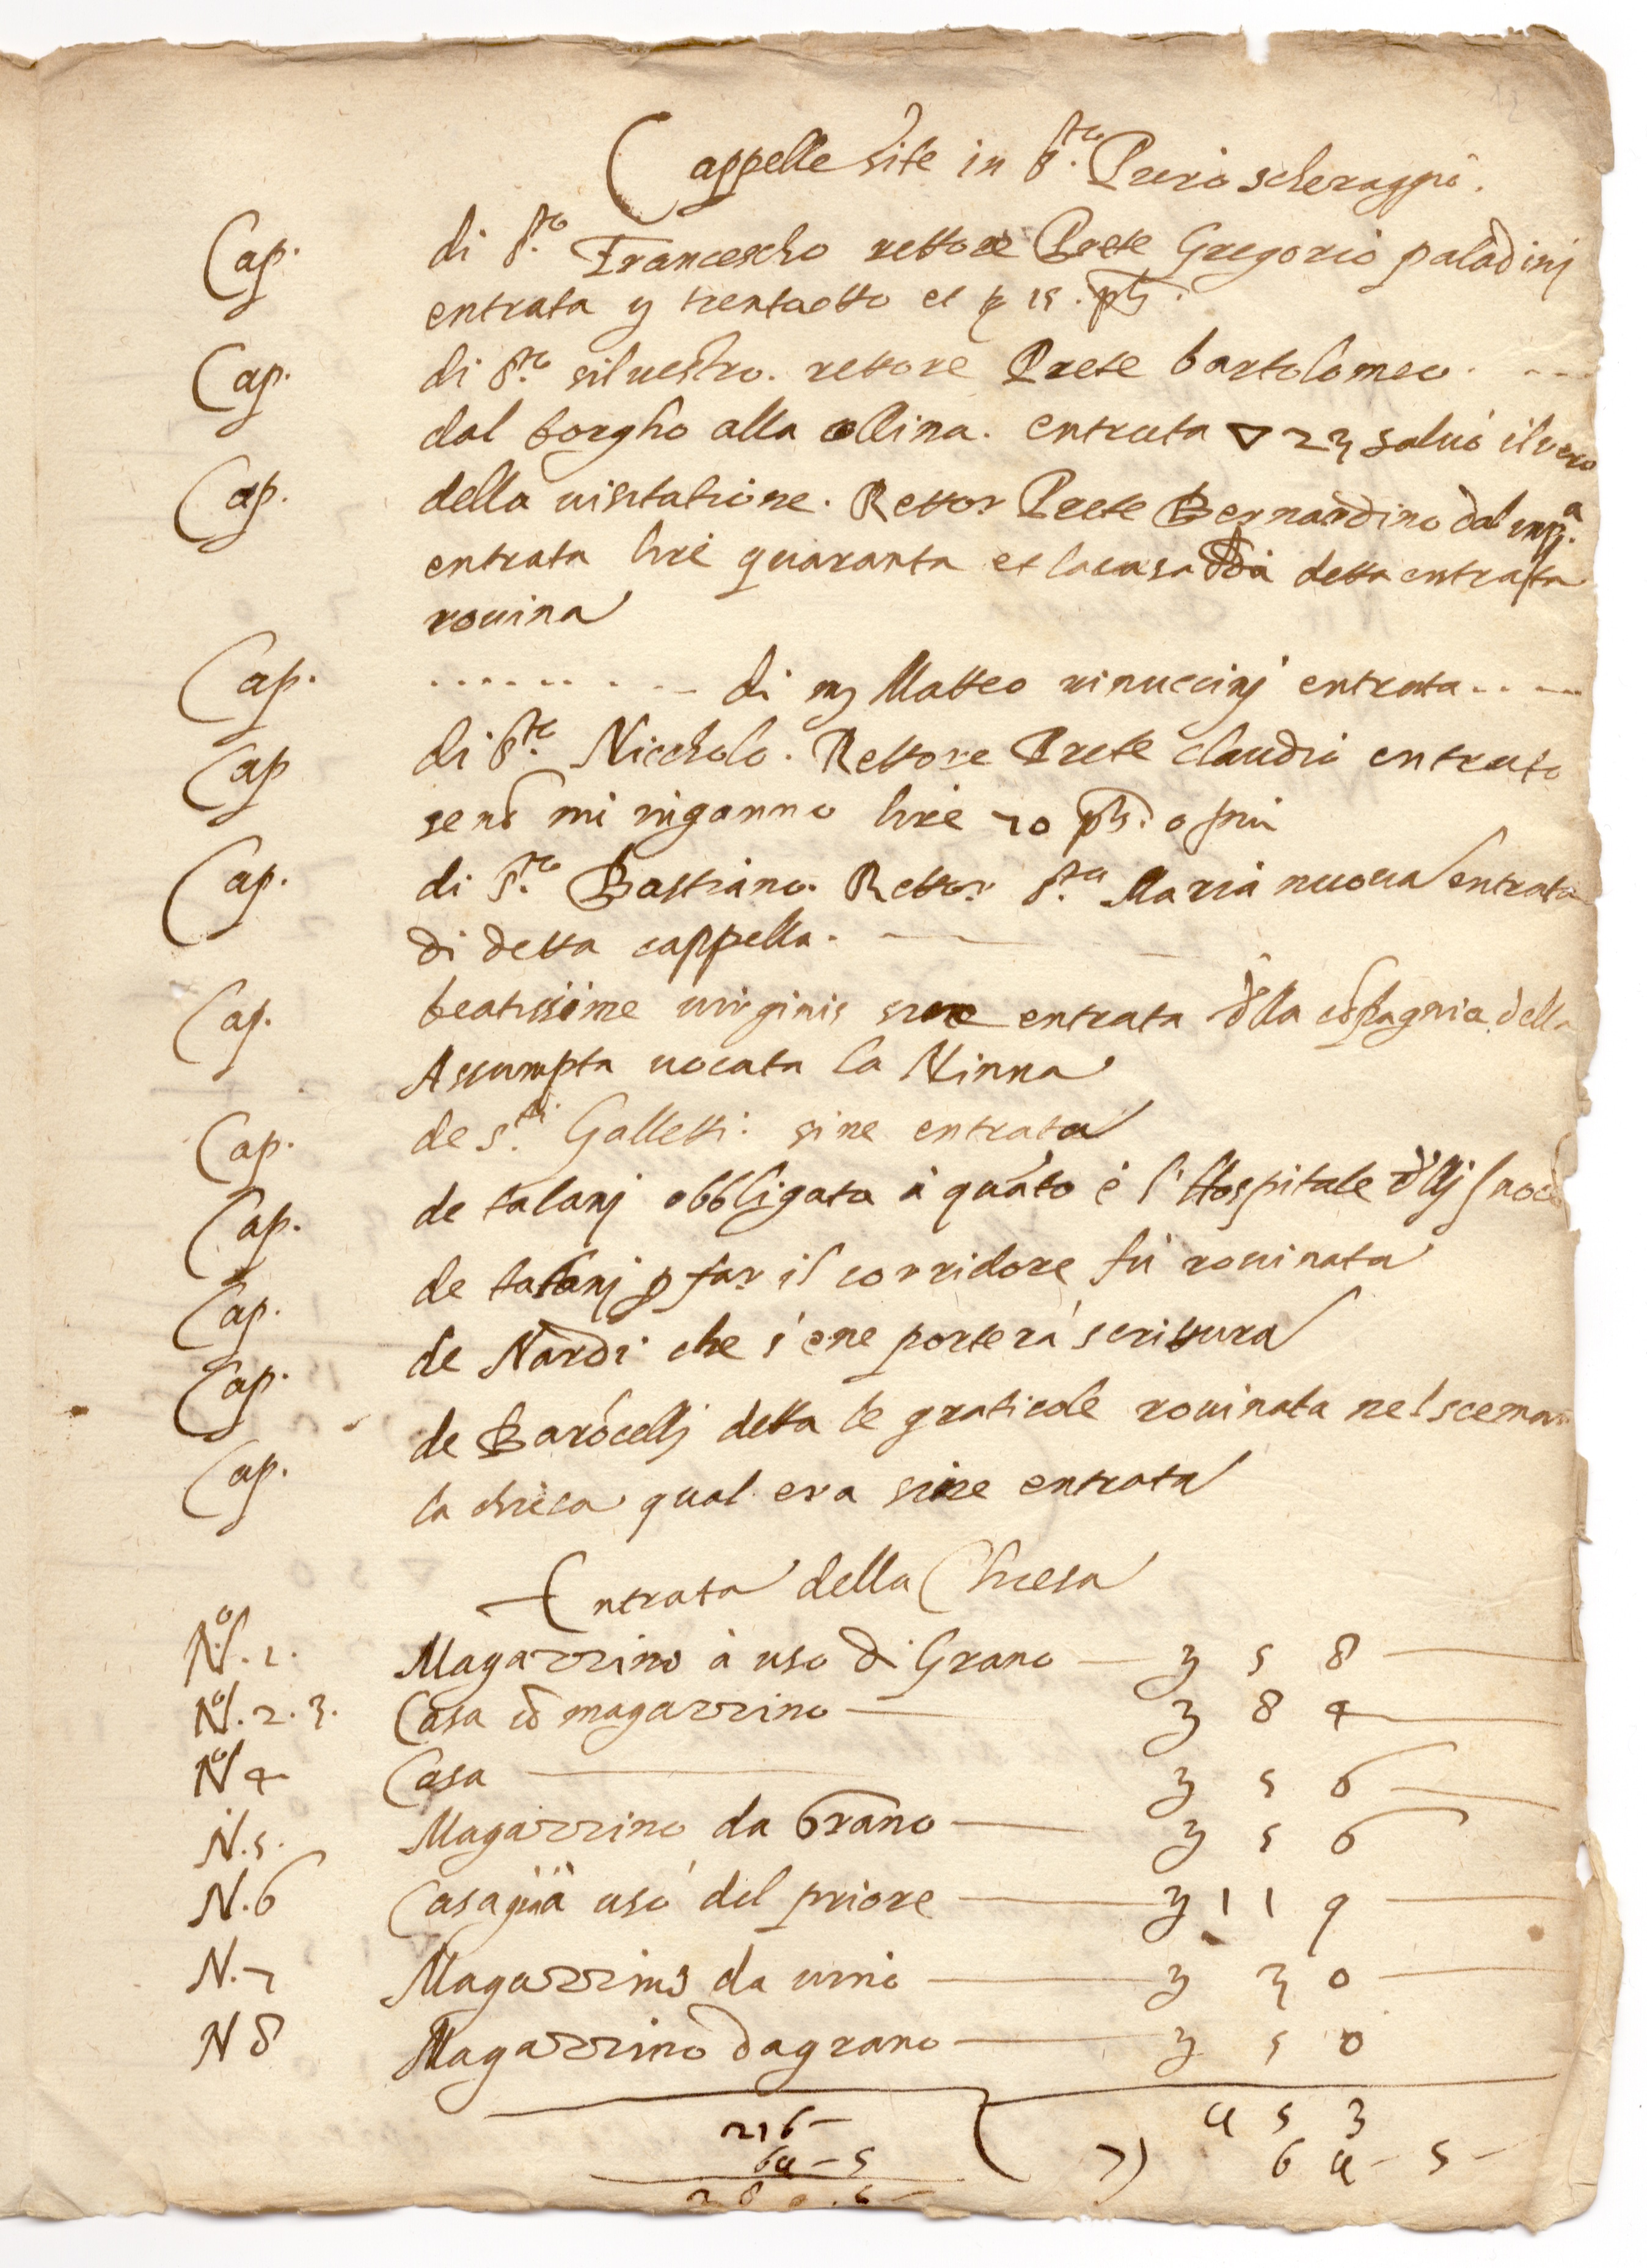 Cappelle site in S.to Piero scheraggio.
Cap. di S.to Francescho rettore Prete Gregorio paladinj
entrata trentaotto et 15.
Cap. di S.to silvestro. rettore Prete bartolomeo. ---
dal borgho alla collina. entrata ▽ 23 salvo il vero
Cap. della visitatione. Rettor Prete Bernardino dal
entrata lire quaranta et la casa di detta entrata
rovina
Cap. ......... di Matteo rinuccinj entrata. . --
Cap di S.to Niccholo. Rettore Prete claudio entrata
senõ mi inganno lire 70 o piu
Cap. di S.to Bastiano. Rettor S.ta Maria nuova entrata
di detta cappella. —
Cap. beatissime virginis sine entrata dlla cõpagnia della
Assumpta vocata la Ninna
Cap. de s.ti Galletti: sine entrata
Cap. de talanj obbligata à quãto è l'Hospitale dllj
Cap. de talanj p far il corridore fù rovinata
Cap. de Nardi che s'ene porterà scrittura
Cap. de Barõcellj detta le graticole rovinata nel scemar
la chiesa qual era sine entrata
Entrata della Chiesa
No. 1. Magazzino à uso di Grano — 3 5 8 —
No. 2. 3. Casa cõ magazzino — 3 8 4 —
No 4 Casa — 3 5 6 —
N. 5. Magazzino da Grano — 3 5 6
N. 6 Casa già à uso del priore — 3 1 1 9 —
N. 7 Magazzino da vino — 3 3 0 —
N 8 Magazzino da grano — 3 5 0
216 — 4 5 3
64 – 5 7) 6 4 – 5 –